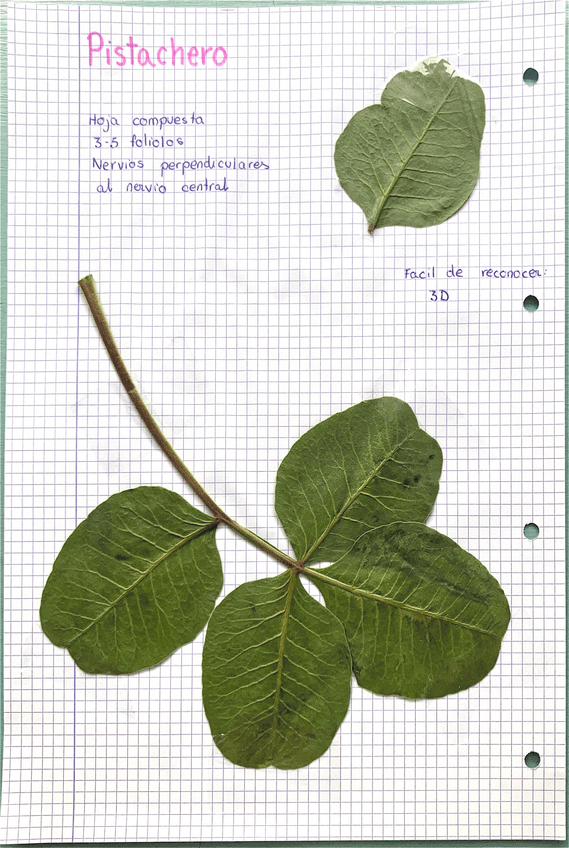 Pistachero
Hoja compuesta
3-5 foliolos
Nervios perpendiculares
al nervio central
Facil de reconocer:
3D